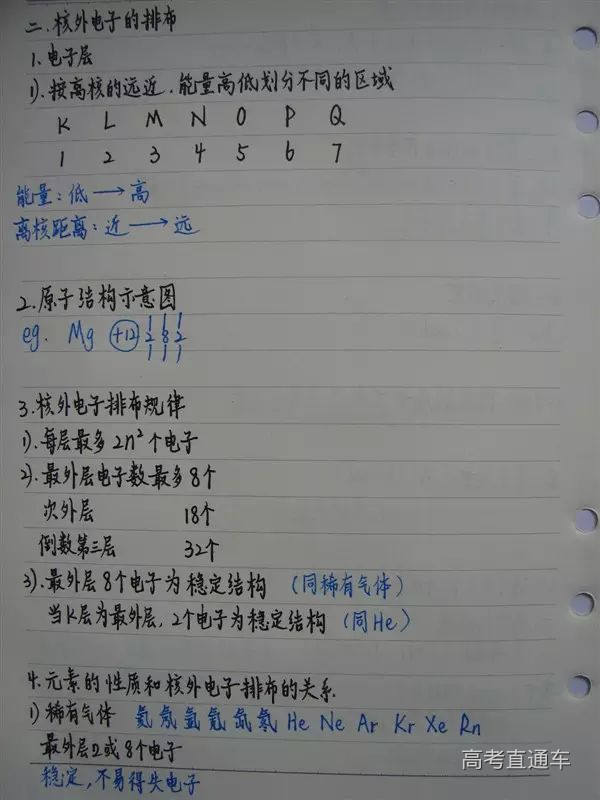 二.核外电子的排布
1.电子层
1).按离核的远近.能量高低划分不同的区域
K L M N O P Q
1 2 3 4 5 6 7
能量:低→高
离核距离:近→远
2.原子结构示意图
eg. Mg +12 2 8 2
3.核外电子排布规律
1).每层最多2n²个电子
2).最外层电子数最多8个
次外层 18个
倒数第三层 32个
3).最外层8个电子为稳定结构 (同稀有气体)
当K层为最外层,2个电子为稳定结构 (同He)
4.元素的性质和核外电子排布的关系.
1) 稀有气体 氦 氖 氩 氪 氙 氡 He Ne Ar Kr Xe Rn
最外层2或8个电子
稳定,不易得失电子
高考直通车